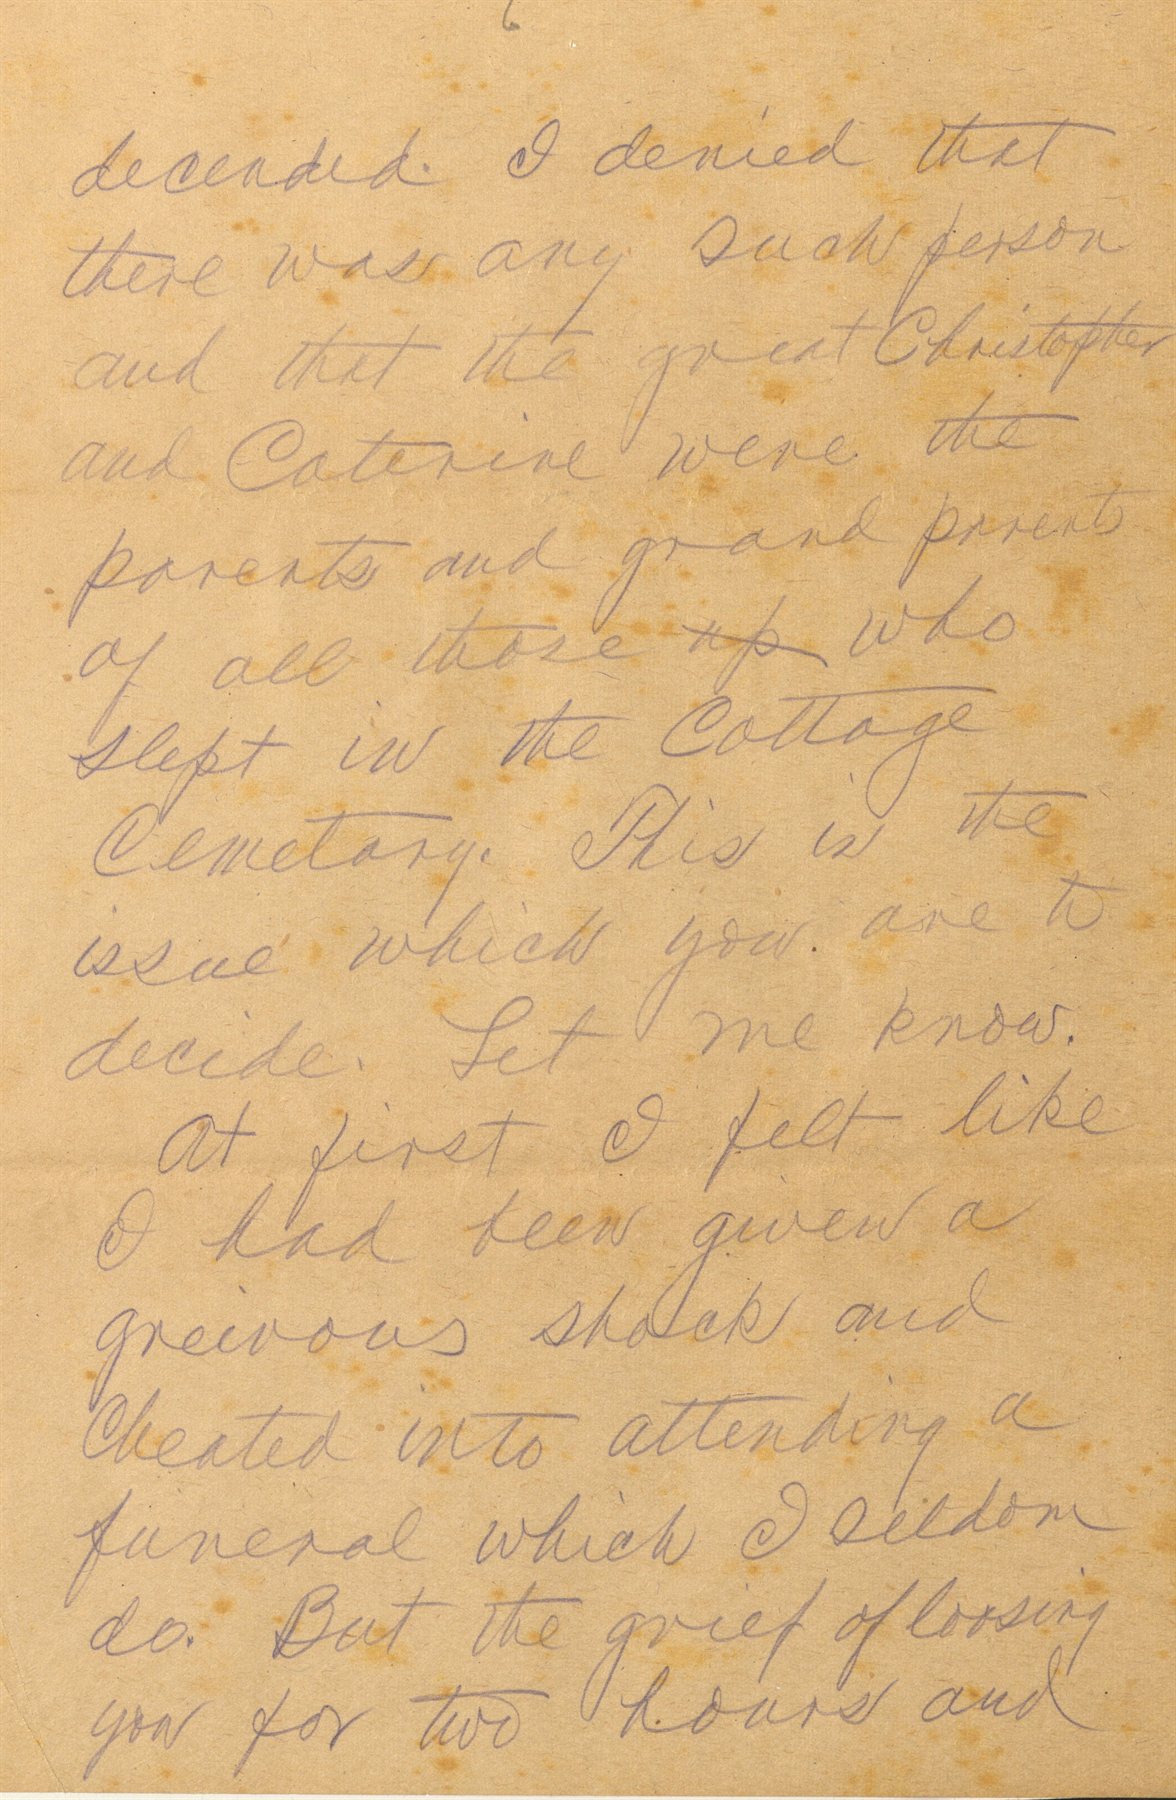 6
decended. I denied that
there was any such person
and that the great Christopher
and Caterine were the
parents and grand parents
of all those up who
slept in the Cottage
Cemetary. This is the
issue which you are to
decide. Let me know.
At first I felt like
I had been given a
greivous shock and
Cheated into attending a
funeral which I seldom
do. But the grief of loosing
you for two hours and